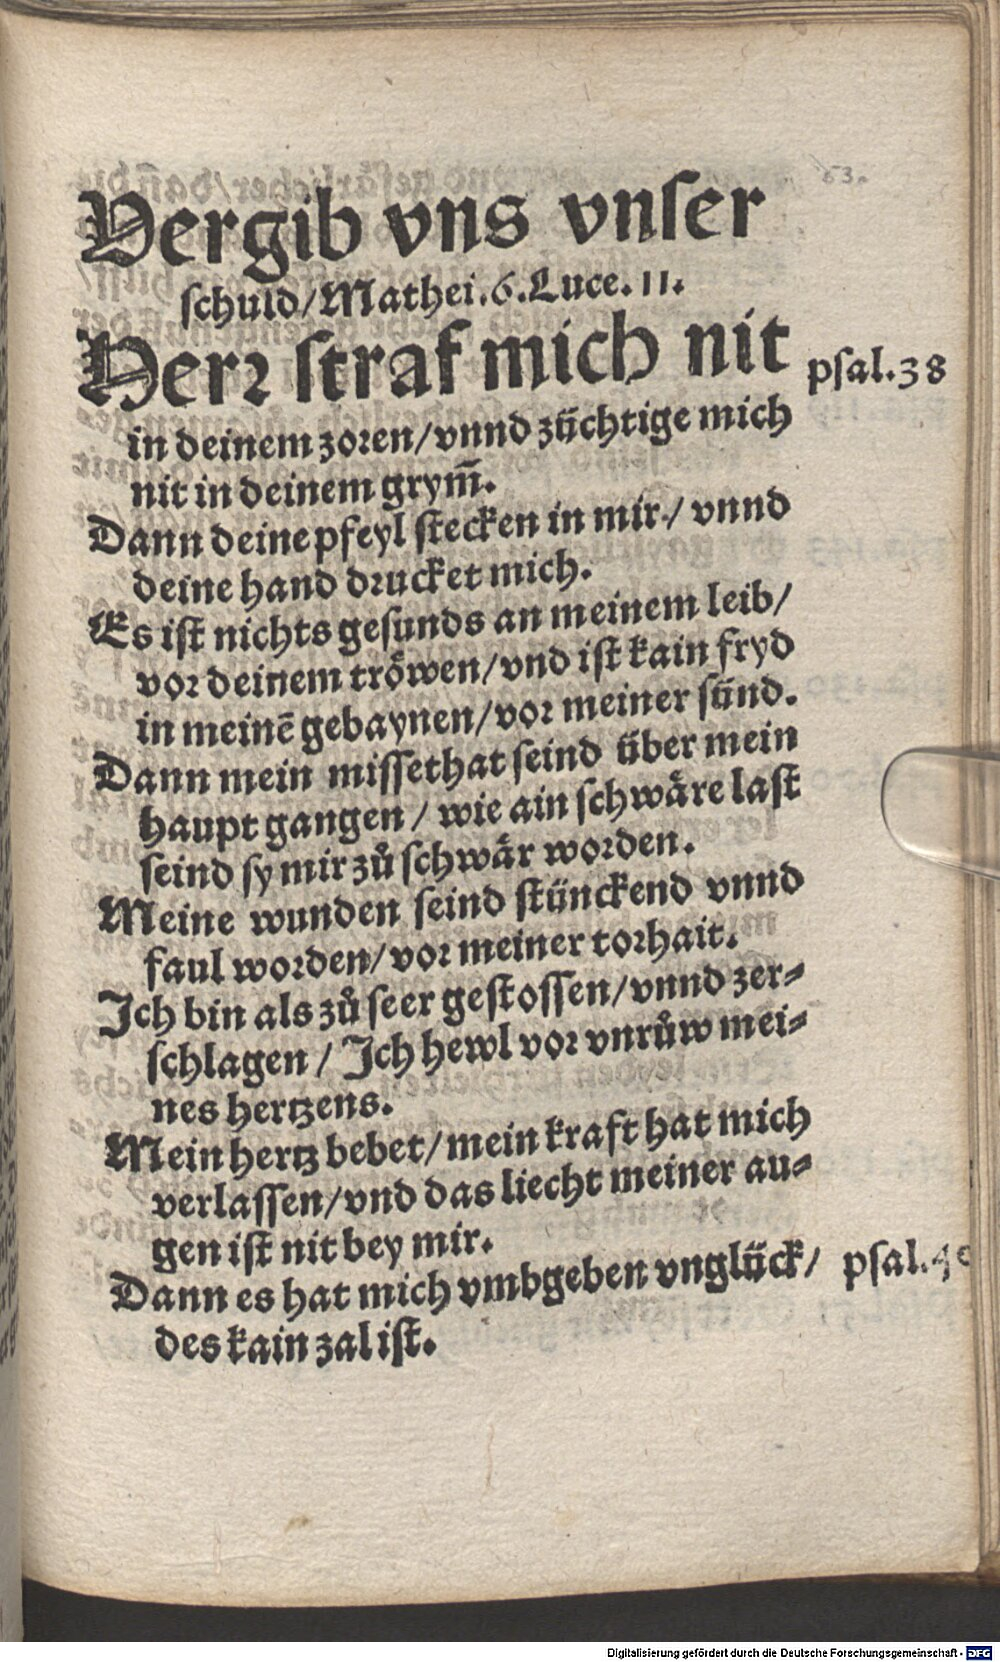 Vergib vns vnser
schuld/Mathei.6.Luce.11.
Herr straf mich nit psal.38
in deinem zoren/vnnd züchtige mich
nit in deinem grym̃.
Dann deine pfeyl stecken in mir/ vnnd
deine hand drucket mich.
Es ist nichts gesunds an meinem leib/
vor deinem trȍwen/vnd ist kain fryd
in meinē gebaynen/vor meiner sünd.
Dann mein missethat seind über mein
haupt gangen/ wie ain schwäre last
seind sy mir zů schwär worden.
Meine wunden seind stünckend vnnd
faul worden/vor meiner torhait.
Ich bin als zů seer gestossen/vnnd zer-
schlagen/ Ich hewl vor vnrůw mei-
nes hertzens.
Mein hertz bebet/mein kraft hat mich
verlassen/vnd das liecht meiner au-
gen ist nit bey mir.
Dann es hat mich vmbgeben vnglück/ psal.40
des kain zal ist.
63.
Digitalisierung gefördert durch die Deutsche Forschungsgemeinschaft - DFG